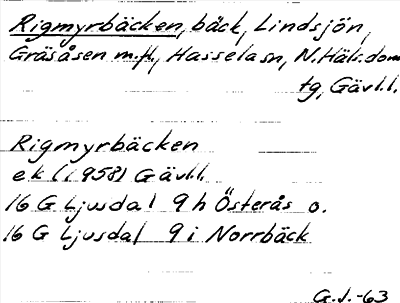 Rigmyrbäcken, bäck, Lindsjön,
Gräsåsen m.fl., Hasselasn, N.Häls.dom
tg, Gävl.l.
Rigmyrbäcken
ek (1958) Gävl.l.
16 G Ljusdal 9 h Österås o.
16 G Ljusdal 9 i Norrbäck
G.J.-63